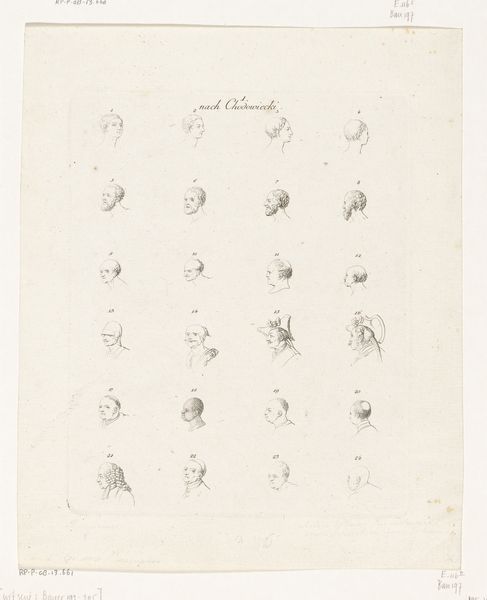 RP-P-OB-19.660
E. 116c
Bau 197
nach Chodowiecki.
1 2 3 4
5 6 7 8
9 10 11 12
13 14 15 16
17 18 19 20
21 22 23 24
RP-P-OB-19.661
E. 116d
Bau 197